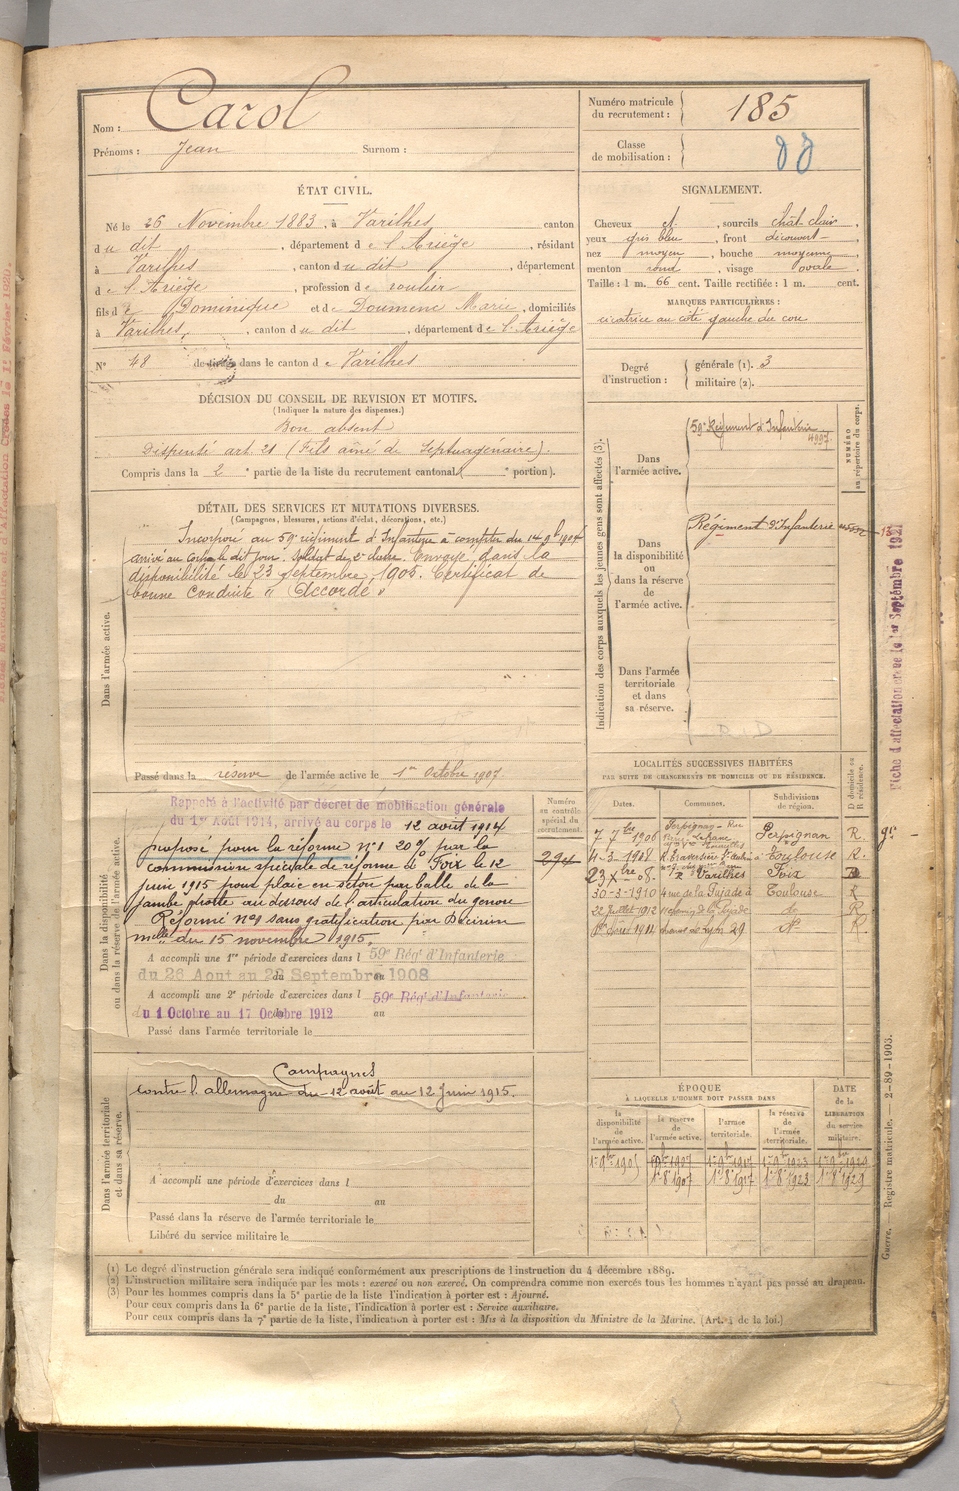 Nom : Carol
Prénoms : Jean Surnom :
Numéro matricule du recrutement : 185
Classe de mobilisation :
ÉTAT CIVIL.
Né le 26 Novembre 1883, à Varilhes canton
du dit, département de l'Ariège, résidant
à Varilhes, canton du dit, département
de l'Ariège, profession de routier
fils de Dominique et de Doumenc Marie, domiciliés
à Varilhes, canton du dit, département de l'Ariège
N° 48 de tirage dans le canton de Varilhes
SIGNALEMENT.
Cheveux d, sourcils chât-clair
yeux gris bleu, front découvert
nez moyen, bouche moyenne
menton rond, visage ovale
Taille : 1 m. 66 cent. Taille rectifiée : 1 m. cent.
MARQUES PARTICULIÈRES :
cicatrice au côté gauche du cou
Degré d'instruction : générale (1). 3
militaire (2).
DÉCISION DU CONSEIL DE REVISION ET MOTIFS.
(Indiquer la nature des dispenses.)
Bon absent
Dispensé art. 21 (Fils aîné de Septuagénaire).
Compris dans la 2e partie de la liste du recrutement cantonal ( e portion).
DÉTAIL DES SERVICES ET MUTATIONS DIVERSES.
(Campagnes, blessures, actions d'éclat, décorations, etc.)
Dans l'armée active.
Incorporé au 59e régiment d'Infanterie à compter du 14 9bre 1904
arrivé au corps le dit jour. Soldat de 2e classe. Envoyé dans la
disponibilité le 23 septembre 1905. Certificat de
bonne conduite " Accordé "
Passé dans la réserve de l'armée active le 1er Octobre 1907
Indication des corps auxquels les jeunes gens sont affectés (3).
NUMÉRO au répertoire du corps.
Dans l'armée active.
59e Régiment d'Infanterie
4997
Dans la disponibilité ou dans la réserve de l'armée active.
Régiment d'Infanterie
Dans l'armée territoriale et dans sa réserve.
Fiche d'affectation créée le 1er Septembre 1921
Dans la disponibilité ou dans la réserve de l'armée active.
Rappelé à l'activité par décret de mobilisation générale
du 1er Août 1914, arrivé au corps le 12 août 1914
proposé pour la réforme n°1 20% par la
commission spéciale de réforme de Foix le 12
juin 1915 pour plaie en séton par balle de la
jambe droite au dessous de l'articulation du genou
Réformé n°1 sans gratification par Décision
melle du 15 novembre 1915.
A accompli une 1re période d'exercices dans l 59e Régt d'Infanterie
du 26 Aout au 22 Septembre 1908
A accompli une 2e période d'exercices dans l 59e Régt d'Infanterie
du 1 Octobre au 17 Octobre 1912
Passé dans l'armée territoriale le
Numéro au contrôle spécial du recrutement.
294
LOCALITÉS SUCCESSIVES HABITÉES
PAR SUITE DE CHANGEMENTS DE DOMICILE OU DE RÉSIDENCE.
Dates. Communes. Subdivisions de région. D domicile ou R résidence.
7 7bre 1906 Perpignan Perpignan R.
4-3-1908 Toulouse R.
23 Xbre 08. Varilhes Foix
30-3-1910 4 rue de la Pujade à Toulouse R
22 Juillet 1912 R
1914 29 R.
Dans l'armée territoriale et dans sa réserve.
Campagnes
contre l'allemagne du 12 août au 12 Juin 1915.
A accompli une période d'exercices dans l
du au
Passé dans la réserve de l'armée territoriale le
Libéré du service militaire le
ÉPOQUE
À LAQUELLE L'HOMME DOIT PASSER DANS
DATE de la LIBÉRATION du service militaire.
la disponibilité de l'armée active. la réserve de l'armée active. l'armée territoriale. la réserve de l'armée territoriale.
1r 9bre 1905 19bre 1907 1r 9bre 1917 1r 9bre 1923 1r 9bre 1929
1r 8bre 1907 1r 8bre 1917 1r 8bre 1923 1r 8bre 1929
Guerre. — Registre matricule. — 2-89-1903.
(1) Le degré d'instruction générale sera indiqué conformément aux prescriptions de l'instruction du 4 décembre 1889.
(2) L'instruction militaire sera indiquée par les mots : exercé ou non exercé. On comprendra comme non exercés tous les hommes n'ayant pas passé au drapeau.
(3) Pour les hommes compris dans la 5e partie de la liste l'indication à porter est : Ajourné.
Pour ceux compris dans la 6e partie de la liste, l'indication à porter est : Service auxiliaire.
Pour ceux compris dans la 7e partie de la liste, l'indication à porter est : Mis à la disposition du Ministre de la Marine. (Art. 4 de la loi.)